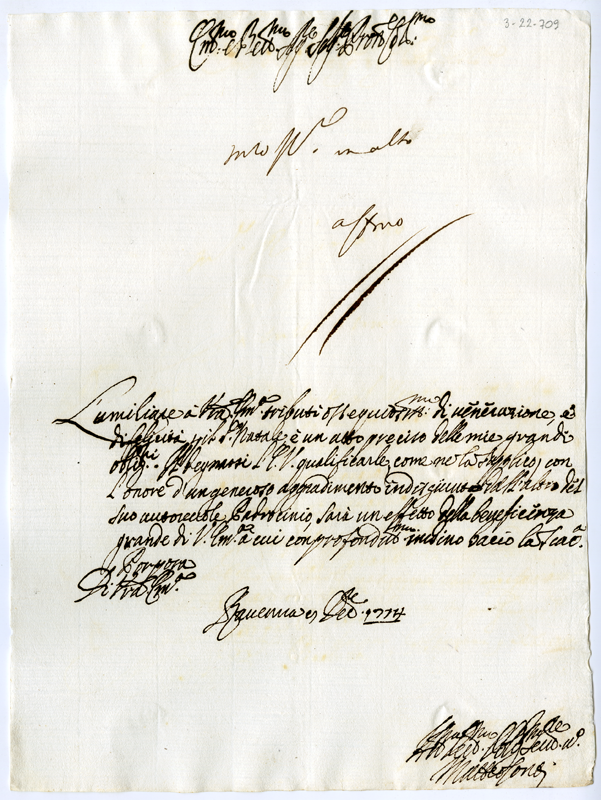 3-22-709
Em.mo e R.mo Sig.re Sig.re P'rone Col.mo
in alto
affmo
L'umiliare à Vra Em.a tributi ossequiosis.mi di venerazione, e
di felicità nel S. Natale è un atto preciso delle mie grandi
oblig.ni. Il degnarsi l'E.V. qualificarle, come ne la supplico, con
l'onore d'un generoso aggradimento indi
suo autorevole Patrocinio, sarà un effetto della beneficenza
grande di V. Em.a à cui con profondiss.mo inchino bacio la Sac.
Porpora
Di Vra Em.a
Ravenna Dec.re 1714
Matteo